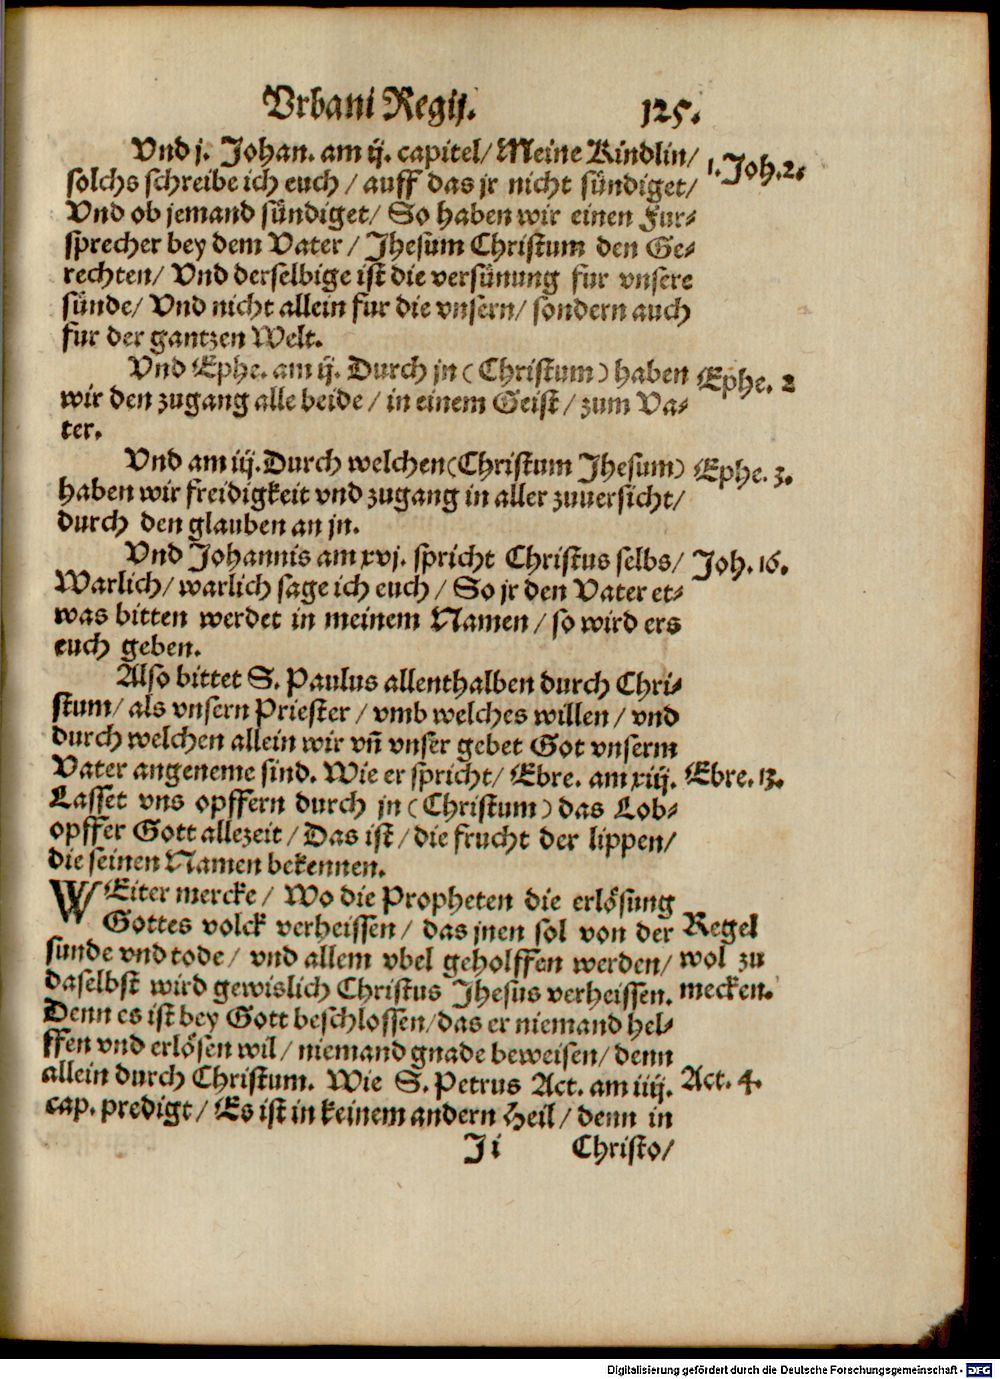 Vrbani Regij. 125.
Vnd j. Johan. am ij. capitel/ Meine Kindlin/
solchs schreibe ich euch / auff das jr nicht sündiget/
Vnd ob jemand sündiget/ So haben wir einen Fur-
sprecher bey dem Vater / Jhesum Christum den Ge-
rechten/ Vnd derselbige ist die versünung fur vnsere
sünde/ Vnd nicht allein fur die vnsern/ sondern auch
fur der gantzen Welt.
1. Joh. 2.
Vnd Ephe. am ij. Durch jn (Christum) haben
wir den zugang alle beide / in einem Geist / zum Va-
ter.
Ephe. 2
Vnd am iij. Durch welchen (Christum Jhesum)
haben wir freidigkeit vnd zugang in aller zuuersicht/
durch den glauben an jn.
Ephe. 3.
Vnd Johannis am xvj. spricht Christus selbs/
Warlich/ warlich sage ich euch / So jr den Vater et-
was bitten werdet in meinem Namen / so wird ers
euch geben.
Joh. 16.
Also bittet S. Paulus allenthalben durch Chri-
stum/ als vnsern Priester / vmb welches willen / vnd
durch welchen allein wir vn̄ vnser gebet Got vnserm
Vater angeneme sind. Wie er spricht/ Ebre. am xiij.
Lasset vns opffern durch jn (Christum) das Lob-
opffer Gott allezeit / Das ist / die frucht der lippen/
die seinen Namen bekennen.
Ebre. 13.
WEiter mercke / Wo die Propheten die erlösung
Gottes volck verheissen / das jnen sol von der
sunde vnd tode / vnd allem vbel geholffen werden/
daselbst wird gewislich Christus Jhesus verheissen.
Denn es ist bey Gott beschlossen/ das er niemand hel-
ffen vnd erlösen wil / niemand gnade beweisen/ denn
allein durch Christum. Wie S. Petrus Act. am iiij.
cap. predigt / Es ist in keinem andern Heil / denn in
Regel
wol zu
mecken.
Act. 4.
Ji Christo/
Digitalisierung gefördert durch die Deutsche Forschungsgemeinschaft - DFG